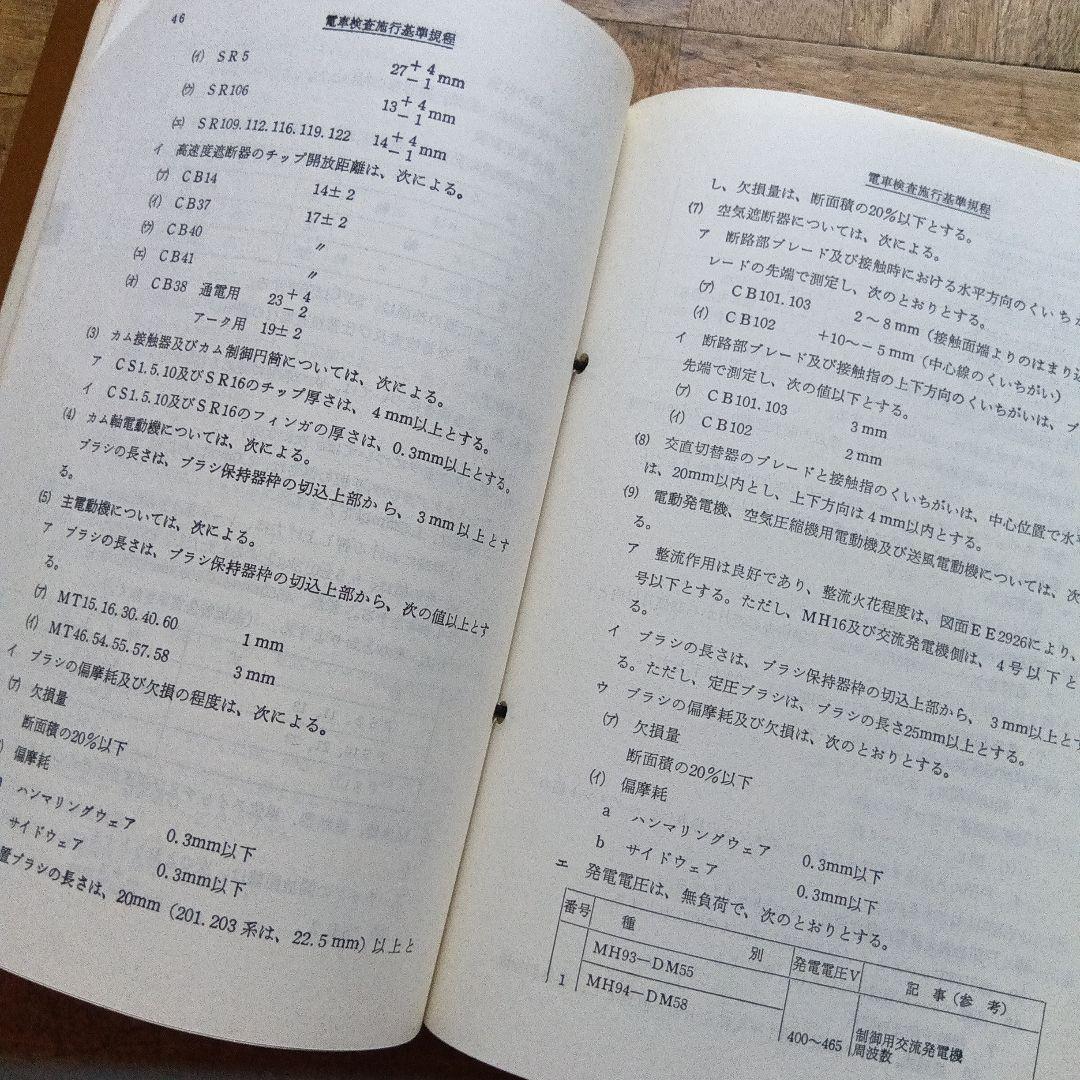 46
電車検査施行基準規程
(イ) SR5 27+4−1mm
(ウ) SR106 13+4−1mm
(エ) SR109.112.116.119.122 14+4−1mm
イ 高速度遮断器のチップ開放距離は、次による。
(ア) CB14 14±2
(イ) CB37 17±2
(ウ) CB40 〃
(エ) CB41 〃
(オ) CB38 通電用 23+4−2
アーク用 19±2
(3) カム接触器及びカム制御円筒については、次による。
ア CS1.5.10及びSR16のチップ厚さは、4mm以上とする。
イ CS1.5.10及びSR16のフィンガの厚さは、0.3mm以上とする。
(4) カム軸電動機については、次による。
ブラシの長さは、ブラシ保持器枠の切込上部から、3mm以上とす
る。
(5) 主電動機については、次による。
ア ブラシの長さは、ブラシ保持器枠の切込上部から、次の値以上とす
る。
(ア) MT15.16.30.40.60 1mm
(イ) MT46.54.55.57.58 3mm
イ ブラシの偏摩耗及び欠損の程度は、次による。
(ア) 欠損量
断面積の20%以下
偏摩耗
ハンマリングウェア 0.3mm以下
サイドウェア 0.3mm以下
置ブラシの長さは、20mm(201.203系は、22.5mm)以上と
電車検査施行基準規程
し、欠損量は、断面積の20%以下とする。
(7) 空気遮断器については、次による。
ア 断路部ブレード及び接触時における水平方向のくいち
レードの先端で測定し、次のとおりとする。
(ア) CB101.103 2〜8mm(接触面端よりのはまり込
(イ) CB102 +10〜−5mm(中心線のくいちがい)
イ 断路部ブレード及び接触指の上下方向のくいちがいは、ブ
先端で測定し、次の値以下とする。
(ア) CB101.103 3mm
(イ) CB102 2mm
(8) 交直切替器のブレードと接触指のくいちがいは、中心位置で水平
は、20mm以内とし、上下方向は4mm以内とする。
(9) 電動発電機、空気圧縮機用電動機及び送風電動機については、次
る。
ア 整流作用は良好であり、整流火花程度は、図面EE2926により、
号以下とする。ただし、MH16及び交流発電機側は、4号以下と
る。
イ ブラシの長さは、ブラシ保持器枠の切込上部から、3mm以上とす
る。ただし、定圧ブラシは、ブラシの長さ25mm以上とする。
ウ ブラシの偏摩耗及び欠損は、次のとおりとする。
(ア) 欠損量
断面積の20%以下
(イ) 偏摩耗
a ハンマリングウェア 0.3mm以下
b サイドウェア 0.3mm以下
エ 発電電圧は、無負荷で、次のとおりとする。
番号 種別 発電電圧V 記事(参考)
MH93—DM55
1 MH94—DM58 400〜465 制御用交流発電機
周波数